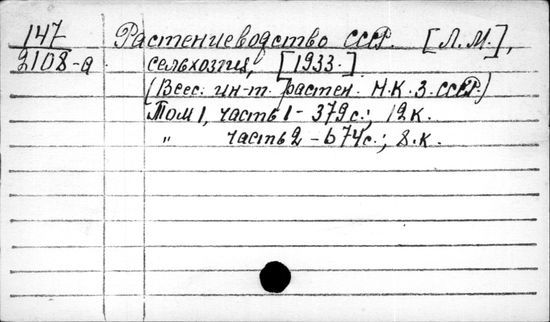 147 Растениеводство СССР. [Л.М.],
2108-а сельхозгиз, [1933.]
(Всес. ин-т. растен. Н.К.З. СССР.)
Том 1, часть 1 - 379 с.; 12 к.
" часть 2 - 674 с.; 8 к.